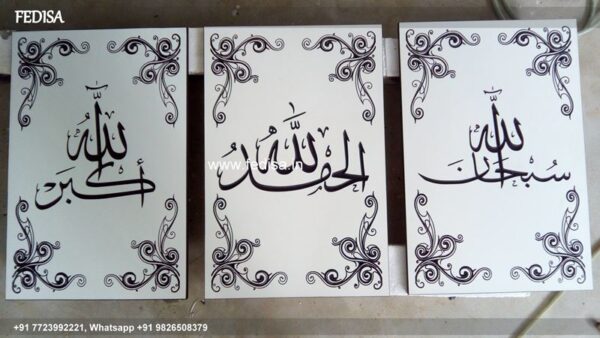 FEDISA
الله
أكبر
الحمد لله
سبحان الله
www.fedisa.in
+91 7723992221, Whatsapp +91 9826508379